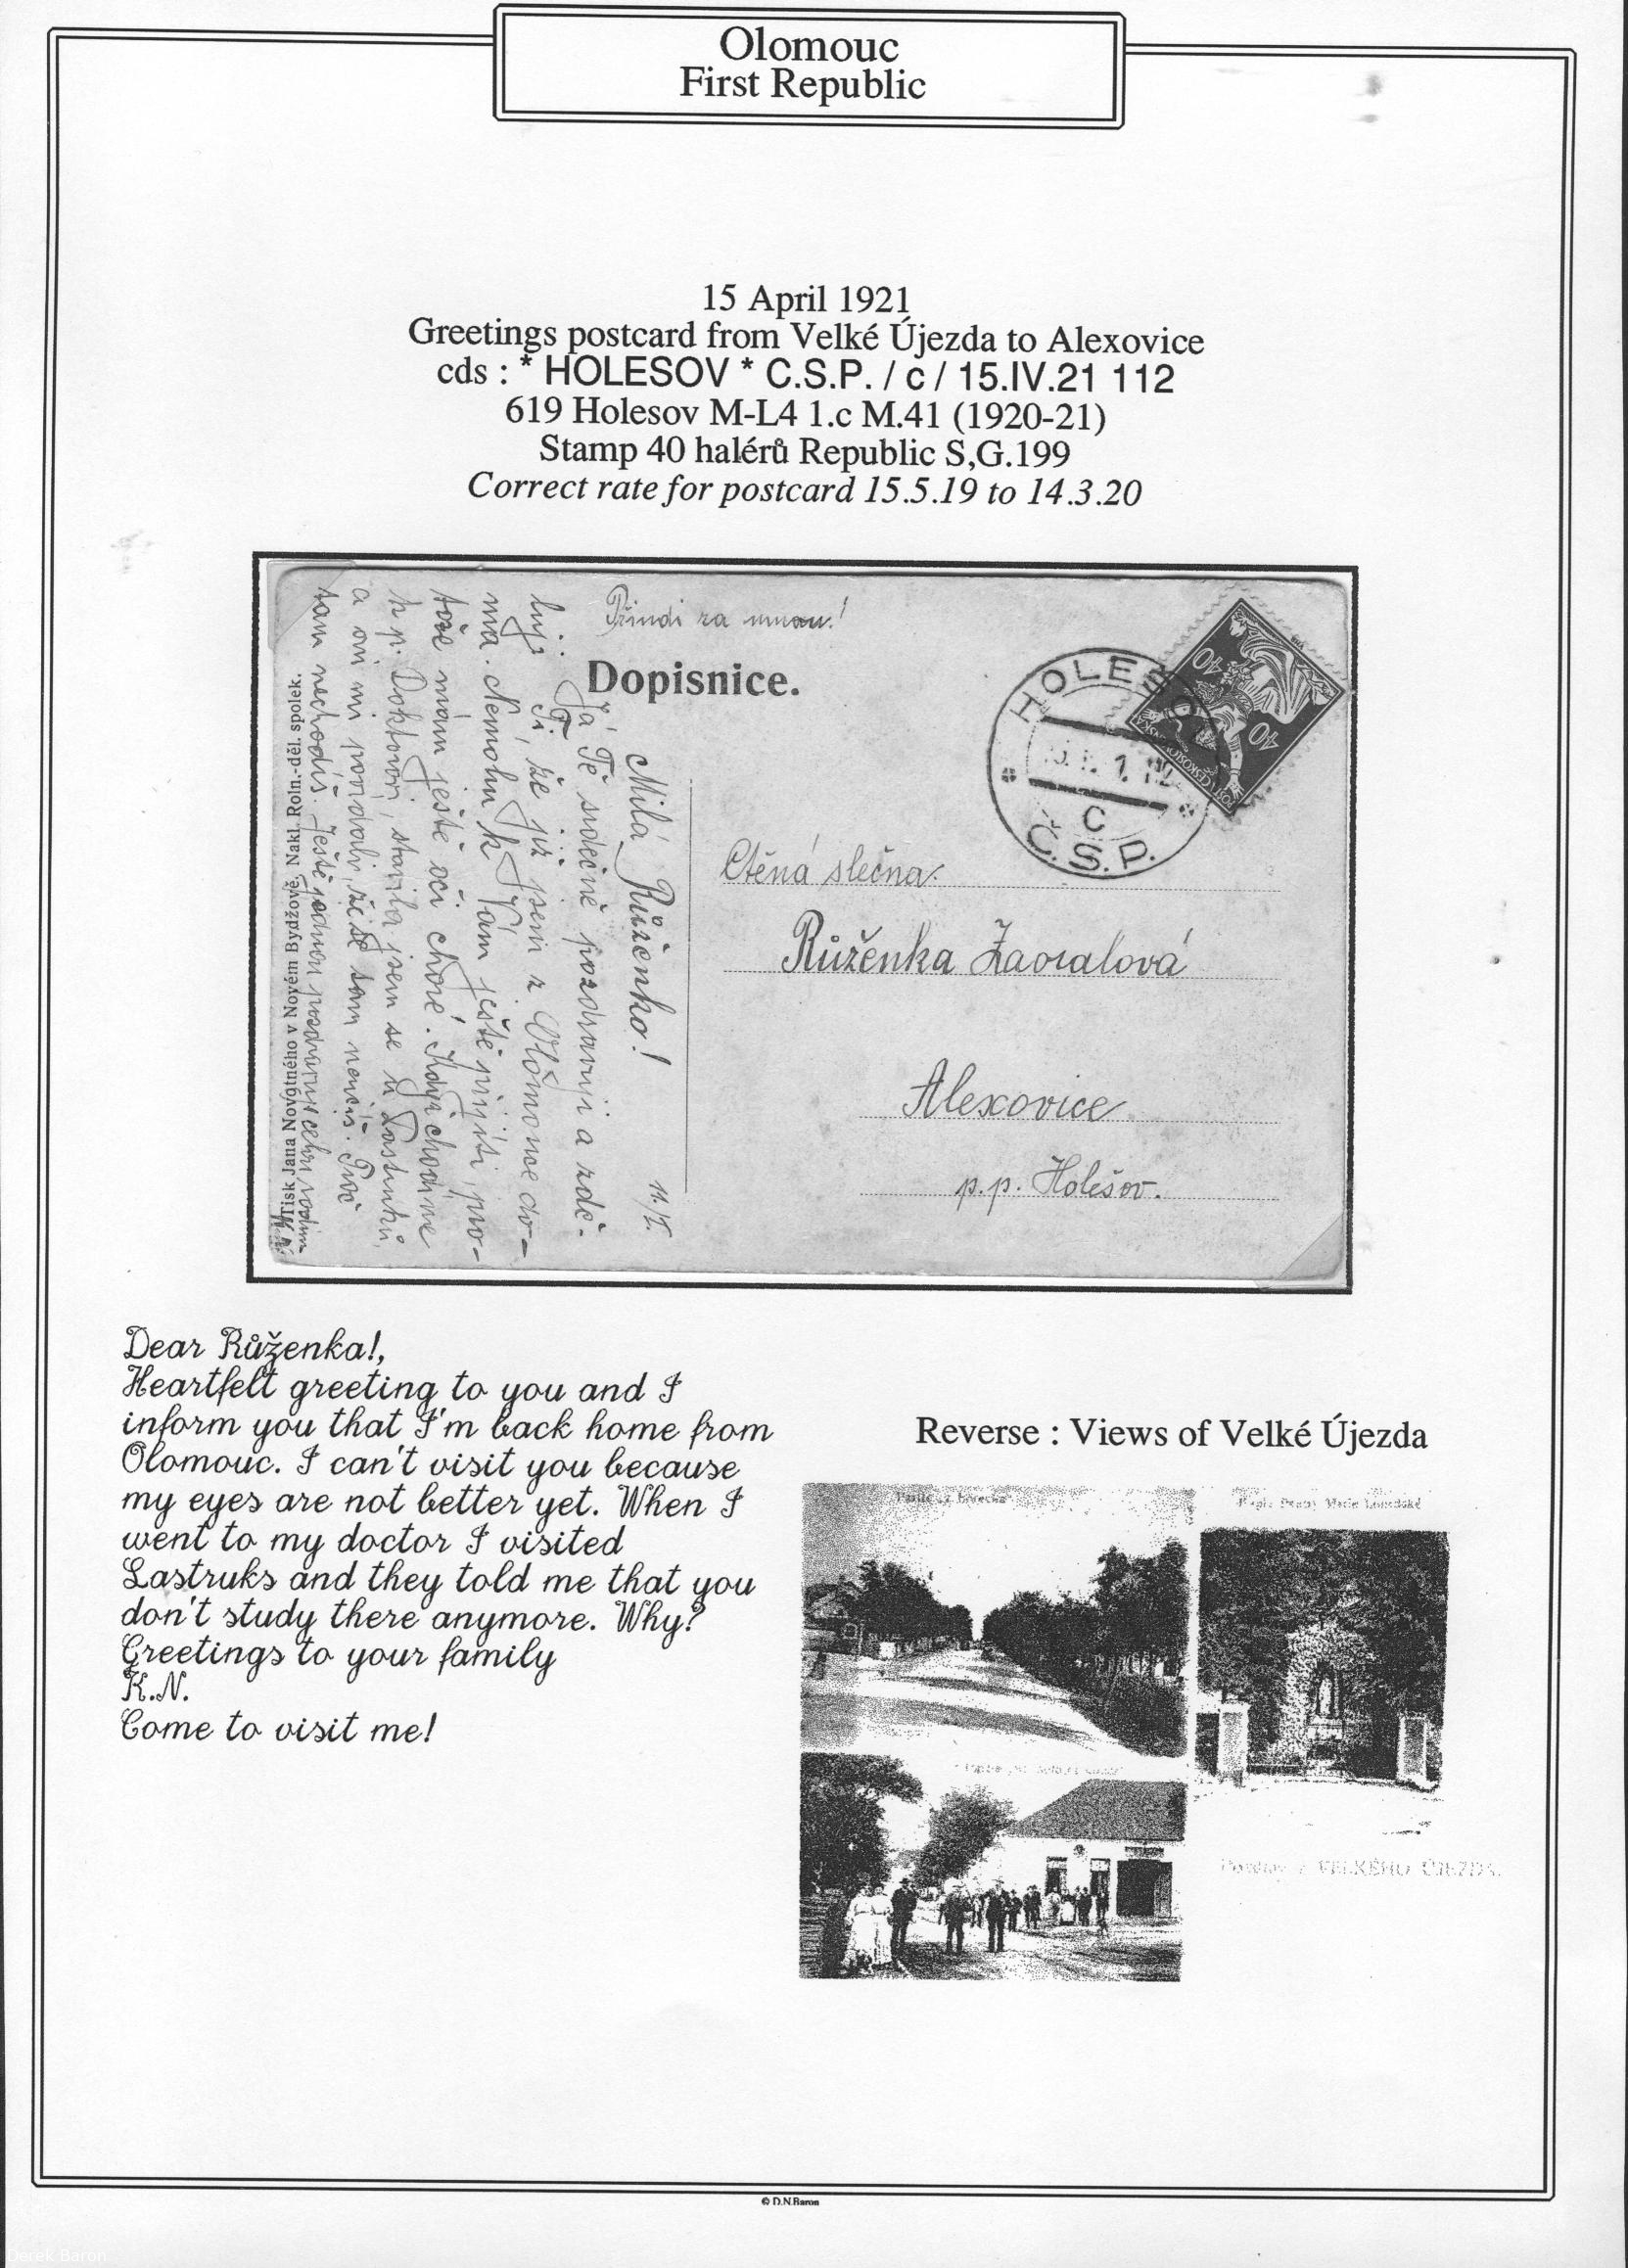 Olomouc
First Republic
15 April 1921
Greetings postcard from Velké Újezda to Alexovice
cds : * HOLESOV * C.S.P. / c / 15.IV.21 112
619 Holesov M-L4 1.c M.41 (1920-21)
Stamp 40 halérů Republic S,G.199
Correct rate for postcard 15.5.19 to 14.3.20
Přindi za mnou!
Dopisnice.
HOLEŠOV
c
Č.S.P.
40
40
Ctěná slečna
Růženka Zaoralová
Alexovice
p.p. Holešov.
11/I.
Milá Růženko!
Já Tě srdečně pozdravuji a zdě-
luji Ti, že již jsem z Olomouce do-
ma. Nemohu k Vám ještě přijíti, pro-
tože mám ještě oči choré. Když chodíme
k p. Doktorovi, stavila jsem se u Lastruků,
a oni mi povídali, že se tam neučíš. Proč
tam nechodíš. Ještě jednou pozdravuji celou rodinu
Tisk Jana Novotného v Novém Bydžově. Nakl. Roln.-děl. spolek.
Dear Růženka!,
Heartfelt greeting to you and I
inform you that I'm back home from
Olomouc. I can't visit you because
my eyes are not better yet. When I
went to my doctor I visited
Lastruks and they told me that you
don't study there anymore. Why?
Greetings to your family
K.N.
Come to visit me!
Reverse : Views of Velké Újezda
VELKÉHO ÚJEZDA.
© D.N.Baron
Derek Baron